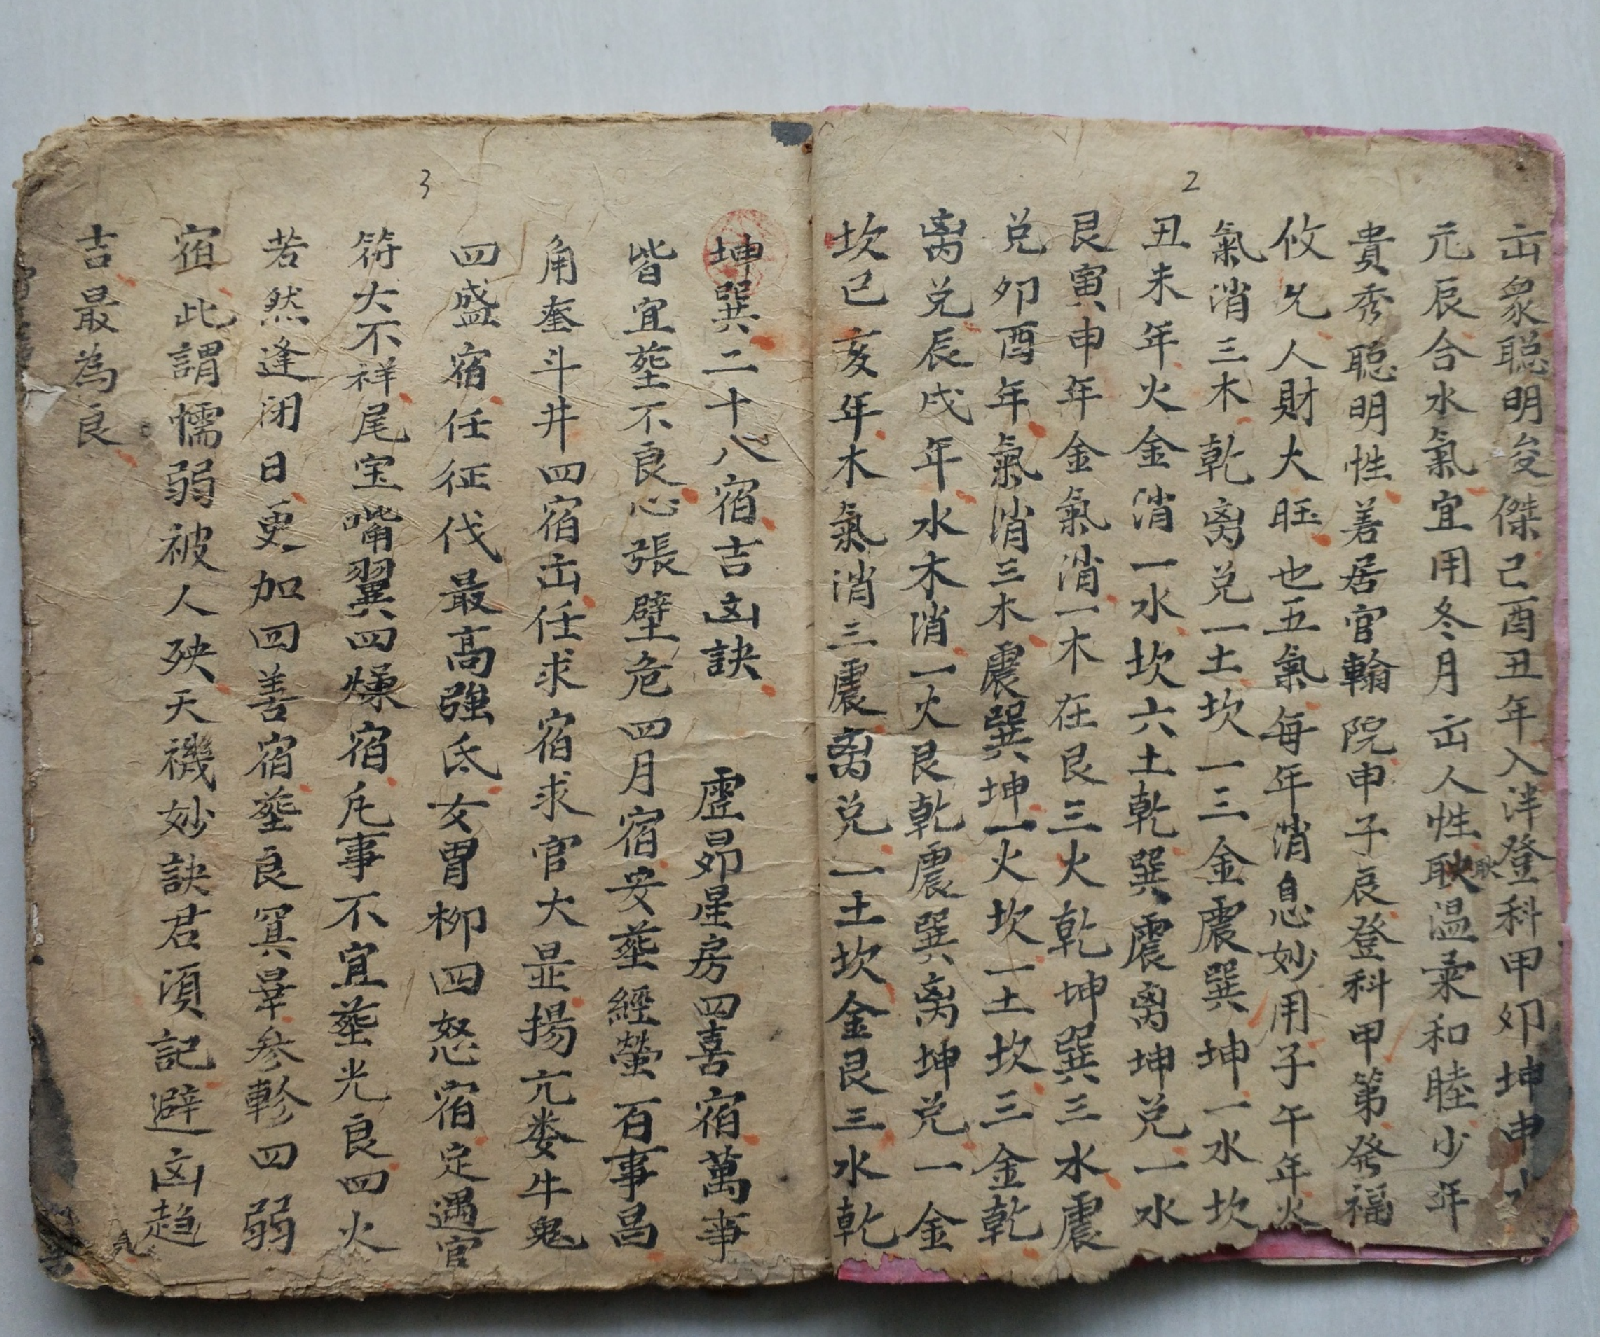 2
出衆聡明俊傑己酉丑年入泮登科甲卯坤申水
元辰合水氣宜用冬月出人性耿温柔和睦少年
耿
貴秀聡明性善居官翰院申子辰登科甲第癸福
攸久人財大旺也五氣每年消息妙用子午年火
氣消三木乾离兑一土坎一三金震巽坤一水坎
丑未年火金消一水坎六土乾巽震离坤兑一水
艮寅申年金氣消一木在艮三火乾坤巽三水震
兑卯酉年氣消三木震巽坤一火坎一土坎三金乾
离兑辰戌年水木消一火艮乾震巽离坤兑一金
坎已亥年木氣消三震离兑一土坎金艮三水乾
3
坤巽二十八宿吉凶訣 虚昴星房四喜宿萬事
皆宜塟不良心張壁危四月宿安塟經營百事昌
角奎斗井四宿出任求宿求官大显揚亢娄牛鬼
四盛宿任征伐最高強氐女胃柳四怒宿定遇官
符大不祥尾宝嘴翼四燥宿凡事不宜塟光良四火
若然逢闭日更加四善宿塟良箕畢参軫四弱
宿此謂懦弱被人殃天禨妙訣君須記避凶趋
吉最為良